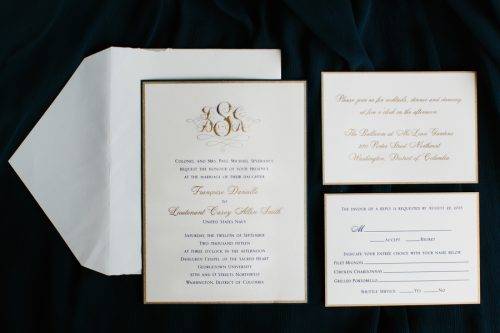 DSC
Colonel and Mrs. Paul Michael
request the honour of your presence
at the marriage of their daughter
Françoise Danielle
to
Lieutenant Casey Allen Smith
United States Navy
Saturday, the twelfth of September
Two thousand fifteen
at three o'clock in the afternoon
Dahlgren Chapel of the Sacred Heart
Georgetown University
37th and O Streets, Northwest
Washington, District of Columbia
Please join us for cocktails, dinner and dancing
at five o'clock in the afternoon
The Ballroom at McLean Gardens
3811 Porter Street Northwest
Washington, District of Columbia
The favour of a reply is requested by August 22, 2015
M
Accept Regret
Indicate your entrée choice with your name below
Filet Mignon
Chicken Chardonnay
Grilled Portobello
Shuttle Service To No